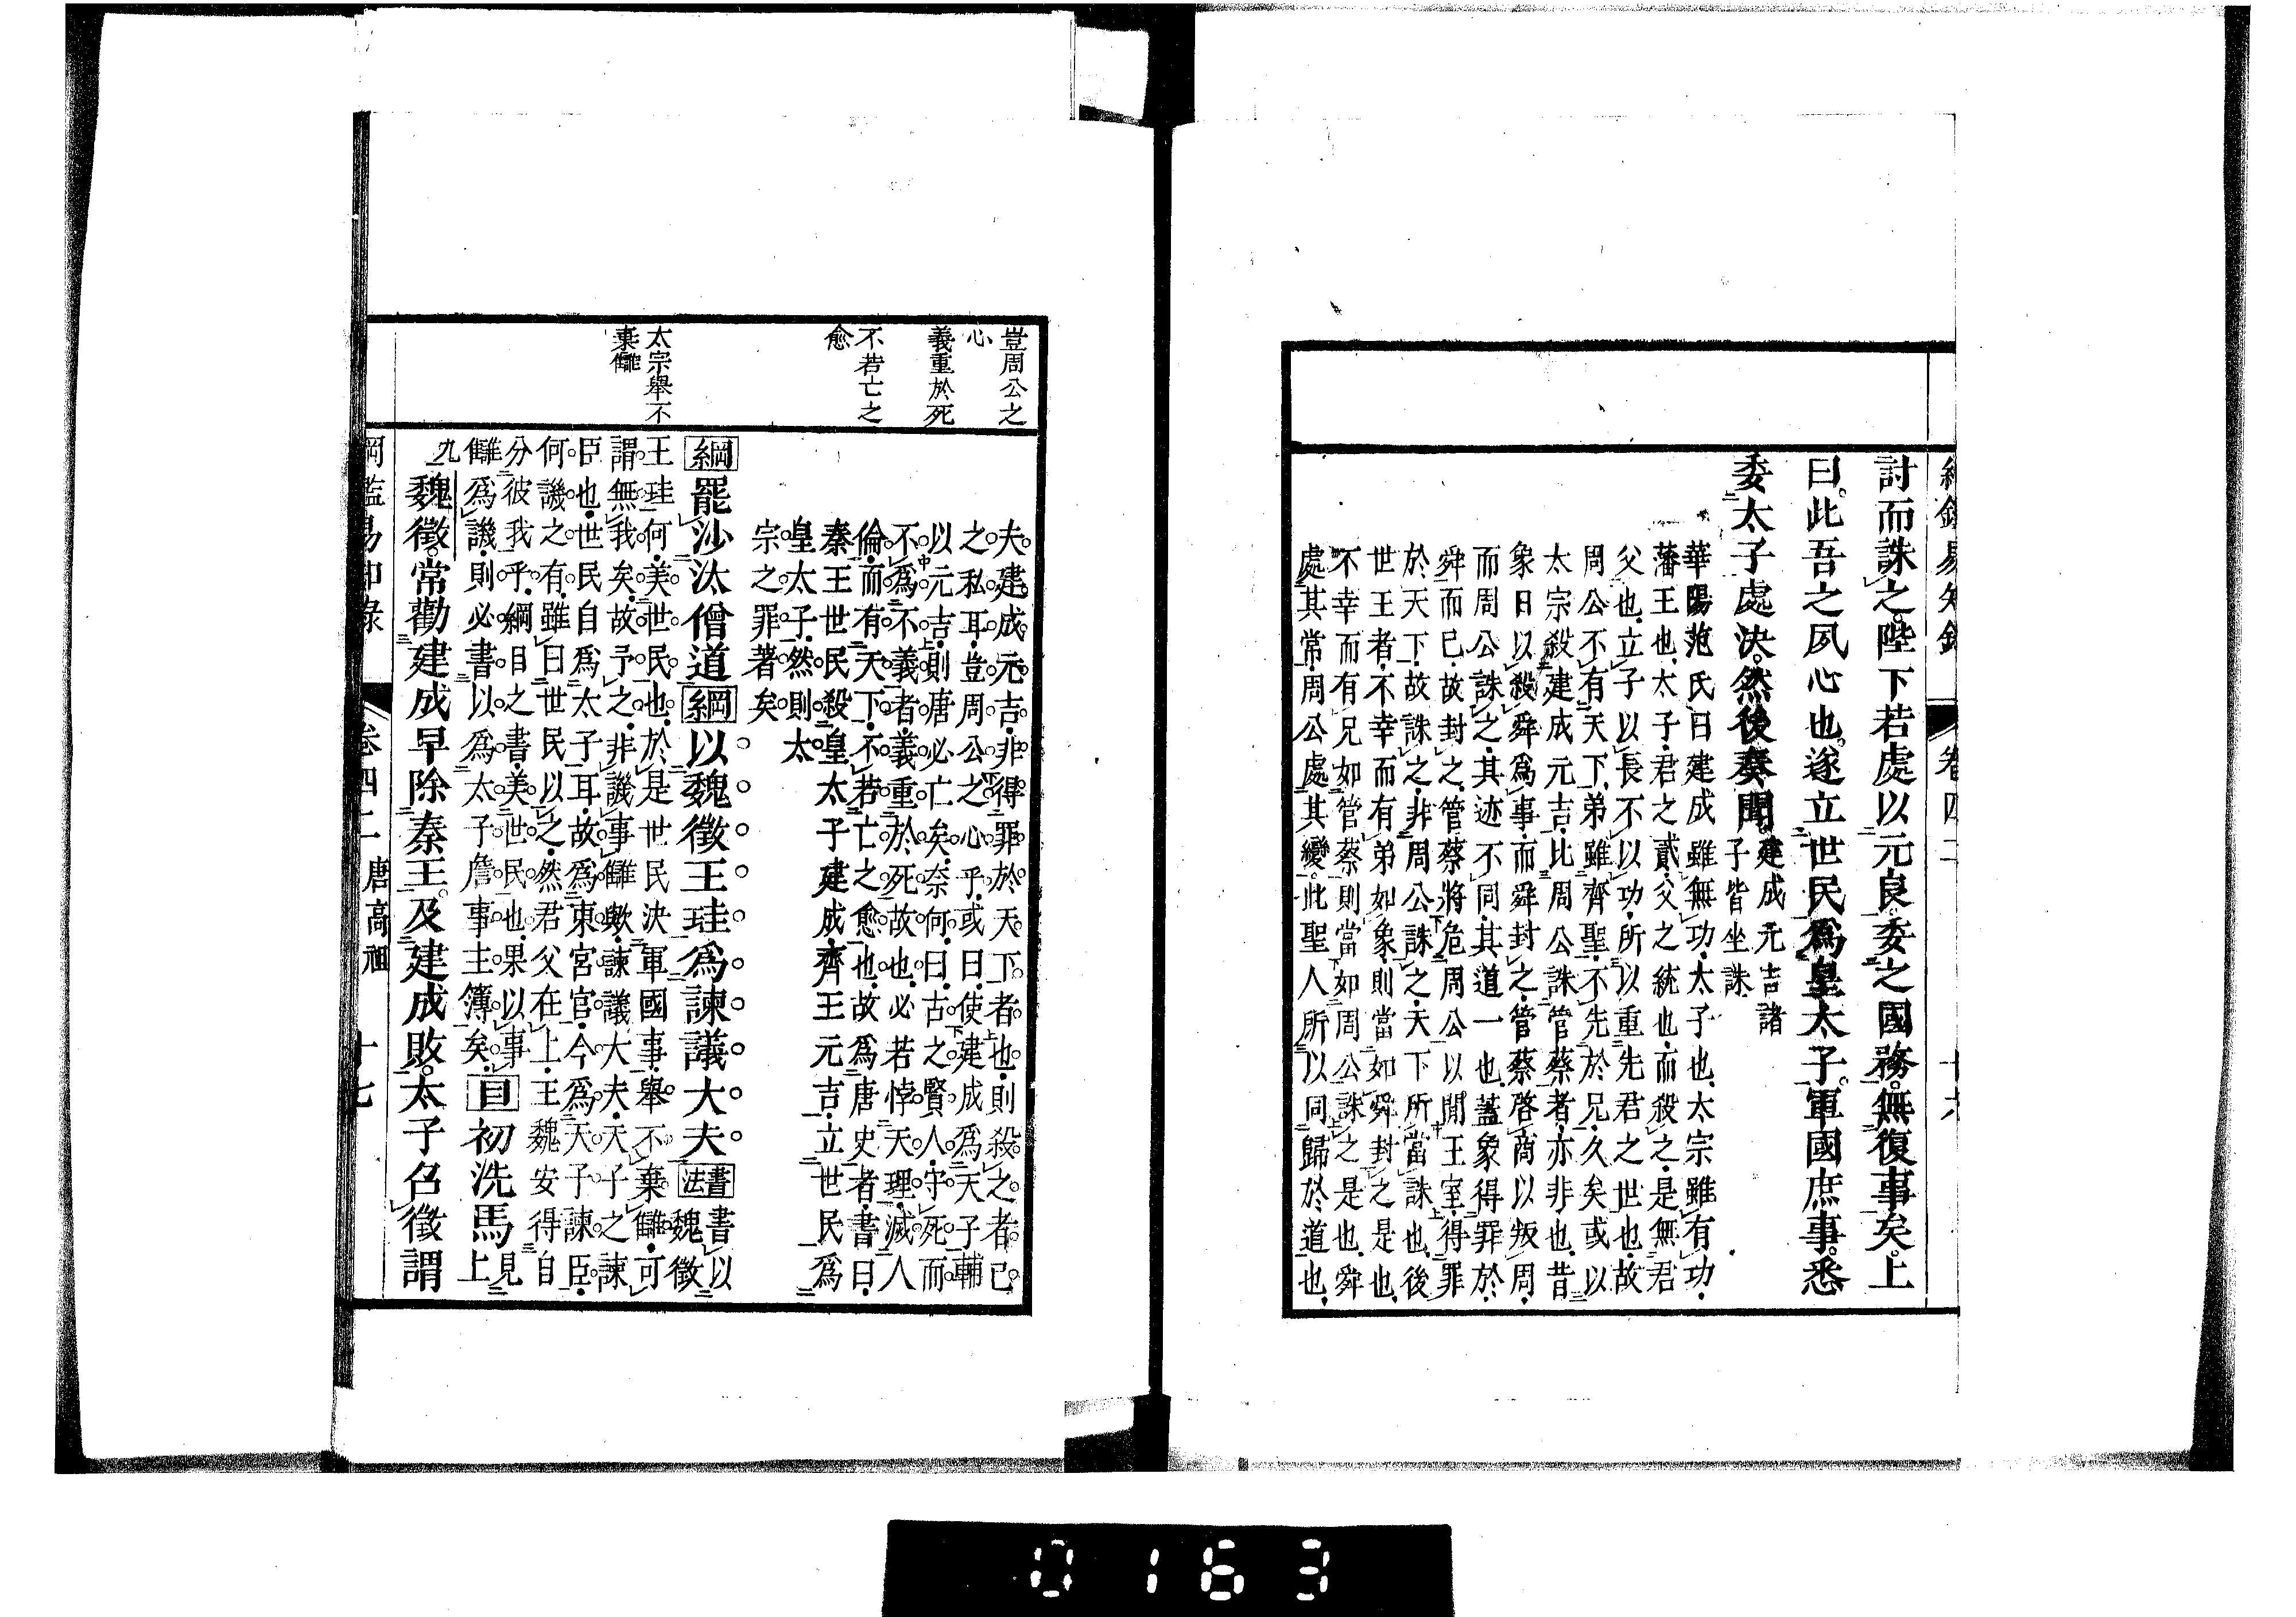 綱鑑易知錄 卷四二 十六
討而誅之。陛下若處以元良。委之國務。無復事矣。上
曰。此吾之夙心也。遂立世民爲皇太子。軍國庶事。悉
委太子處決。然後奏聞。
建成元吉諸
子皆坐誅
華陽范氏曰建成雖無功太子也太宗雖有功
藩王也太子君之貳父之統也而殺之是無君
父也立子以長不以功所以重先君之世也故
周公不有天下弟雖齊聖不先於兄久矣或以
太宗殺建成元吉比周公誅管蔡者亦非也昔
象日以殺舜爲事而舜封之管蔡啓商以叛周
而周公誅之其迹不同其道一也蓋象得罪於
舜而已故封之管蔡將危周公以閒王室得罪
於天下故誅之非周公誅之天下所當誅也後
世王者不幸而有弟如象則當如舜封之是也
不幸而有兄如管蔡則當如周公誅之是也舜
處其常周公處其變此聖人所以同歸於道也
豈周公之
心
義重於死
不若亡之
愈
太宗舉不
棄讎
夫建成元吉非得罪於天下者也則殺之者已
之私耳豈周公之心乎或曰使建成爲天子輔
以元吉則唐必亡矣奈何曰古之賢人守死而
不爲不義者義重於死故也必若悖天理滅人
倫而有天下不若亡之愈也故爲唐史者書曰
秦王世民殺皇太子建成齊王元吉立世民爲
皇太子然則太
宗之罪著矣
綱 罷沙汰僧道 綱 以魏徵王珪爲諫議大夫
書法 書以
魏徵
王珪何美世民也於是世民決軍國事舉不棄讎可
謂無我矣故予之非譏事讎歟諫議大夫天子之諫
臣也世民自爲太子耳故爲東宮官今爲天子諫臣
何譏之有雖曰世民以之然君父在上王魏安得自
分彼我乎綱目之書美世民也果以事
讎爲譏則必書以爲太子詹事主簿矣
目 初洗馬
見
上
九
魏徵。常勸建成早除秦王。及建成敗。太子召徵謂
綱鑑易知錄 卷四二 唐高祖 十七
0163